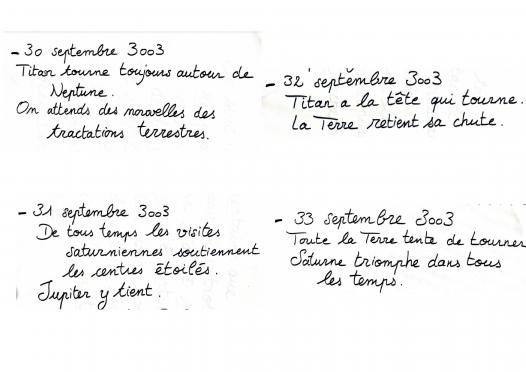 - 30 septembre 3003
Titan tourne toujours autour de
Neptune.
On attends des nouvelles des
tractations terrestres.
- 31 septembre 3003
De tous temps les visites
saturniennes soutiennent
les centres étoilés.
Jupiter y tient.
- 32 septembre 3003
Titan a la tête qui tourne.
La Terre retient sa chute.
- 33 septembre 3003
Toute la Terre tente de tourner
Saturne triomphe dans tous
les temps.